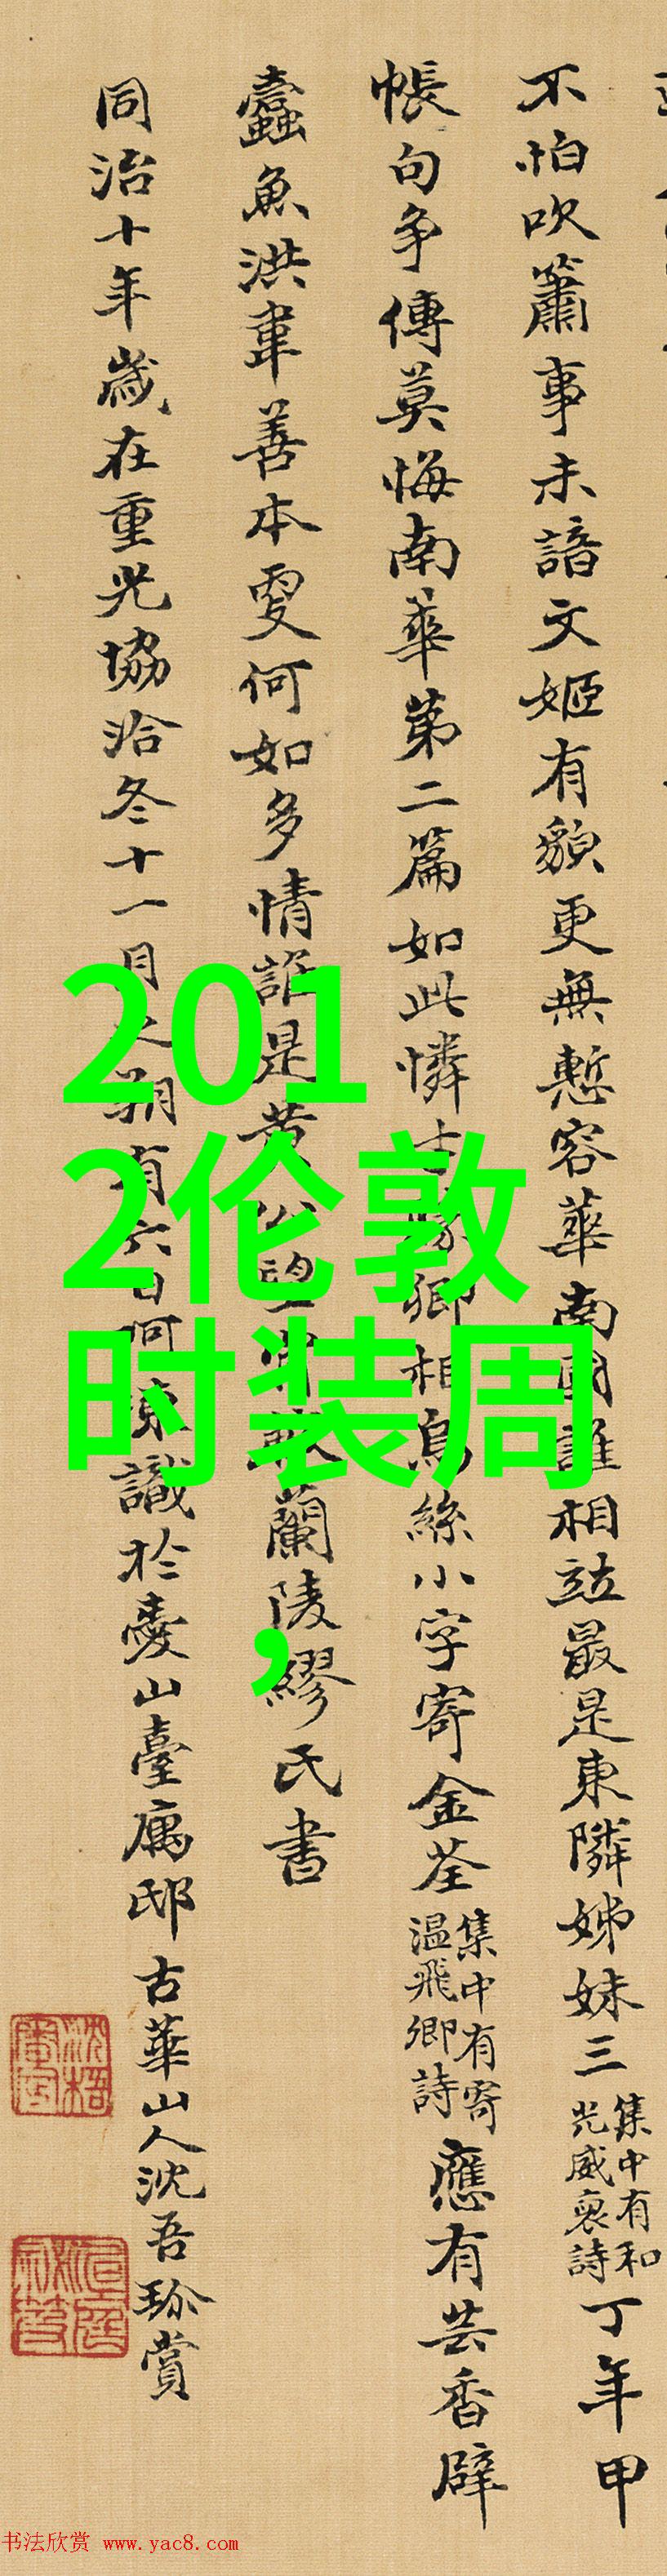 不怕吹簫事未諳文姬有貌更無慙容華南國誰相竝最是東隣姊妹三
集中有和
光威裒詩
丁年甲
帳句争傳莫悔南華第二篇如此憐卿相烏絲小字寄金荃
集中有寄
温飛卿詩
應有芸香辟
蠹魚洪韋善本叓何如多情誰是黄蘭陵繆氏書
同治十年歲在重光協洽冬十一月朔有六日識於山臺古華山人沈吾珎賞
201
2伦敦
时装周
,
书法欣赏 www.yac8.com